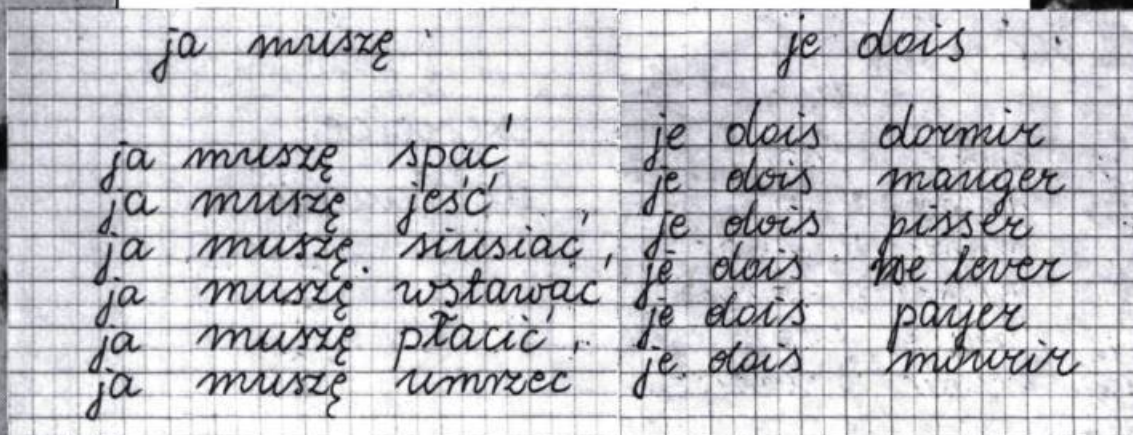 ja muszę
ja muszę spać
ja muszę jeść
ja muszę siusiać,
ja muszę wstawać
ja muszę płacić,
ja muszę umrzec
je dois
je dois dormir
je dois manger
je dois pisser
je dois me lever
je dois payer
je dois mourir